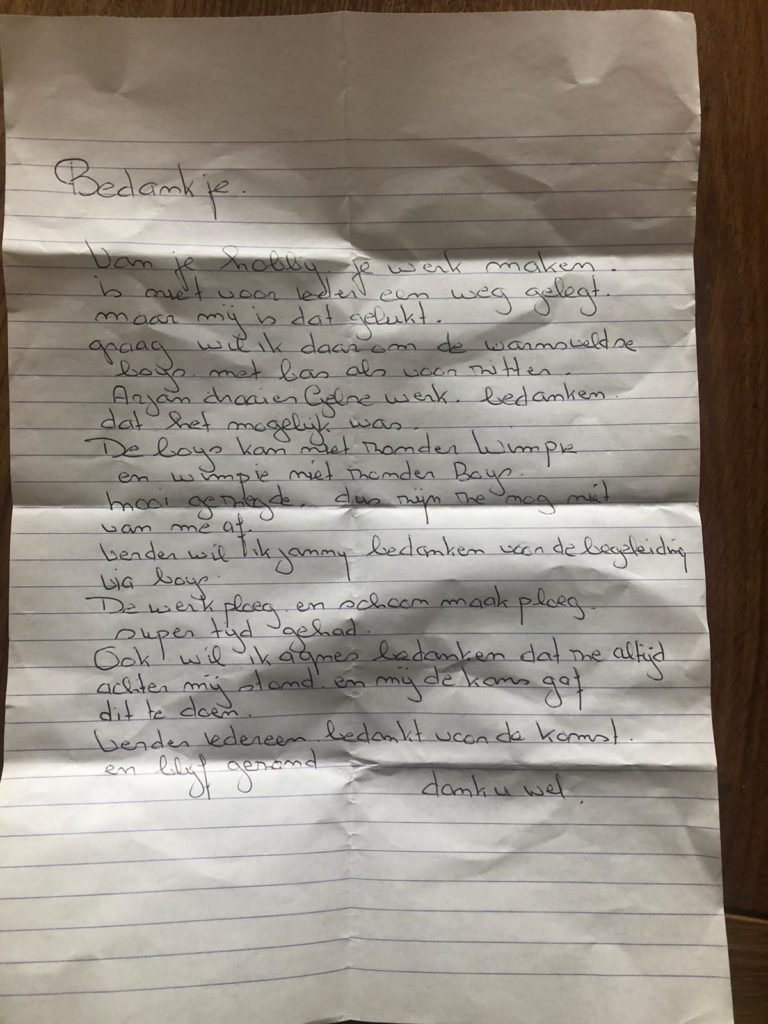 Bedankje.
Van je hobby je werk maken.
is niet voor ieder een weg gelegt.
maar mij is dat gelukt.
graag wil ik daarom de warnsveldse
boys met bas als voorzitter.
Arjan draaier Gelre werk. bedanken.
dat het mogelijk was.
De boys kan niet zonder Wimpie
en wimpie niet zonder Boys.
mooi gezegde. dus zijn ze nog niet
van me af.
verder wil ik jammy bedanken voor de begeleiding
via boys.
De werkploeg en schoonmaak ploeg.
super tijd gehad.
Ook wil ik agnes bedanken dat ze altijd
achter mij stond en mij de kans gaf
dit te doen.
verder iedereen bedankt voor de komst.
en blijf gezond
dank u wel.